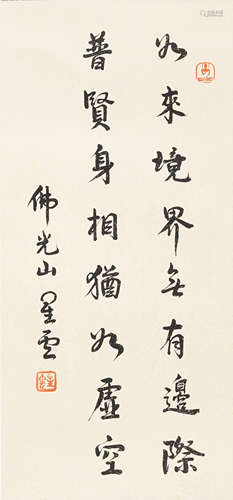 如來境界無有邊際
普賢身相猶如虛空
佛光山星雲